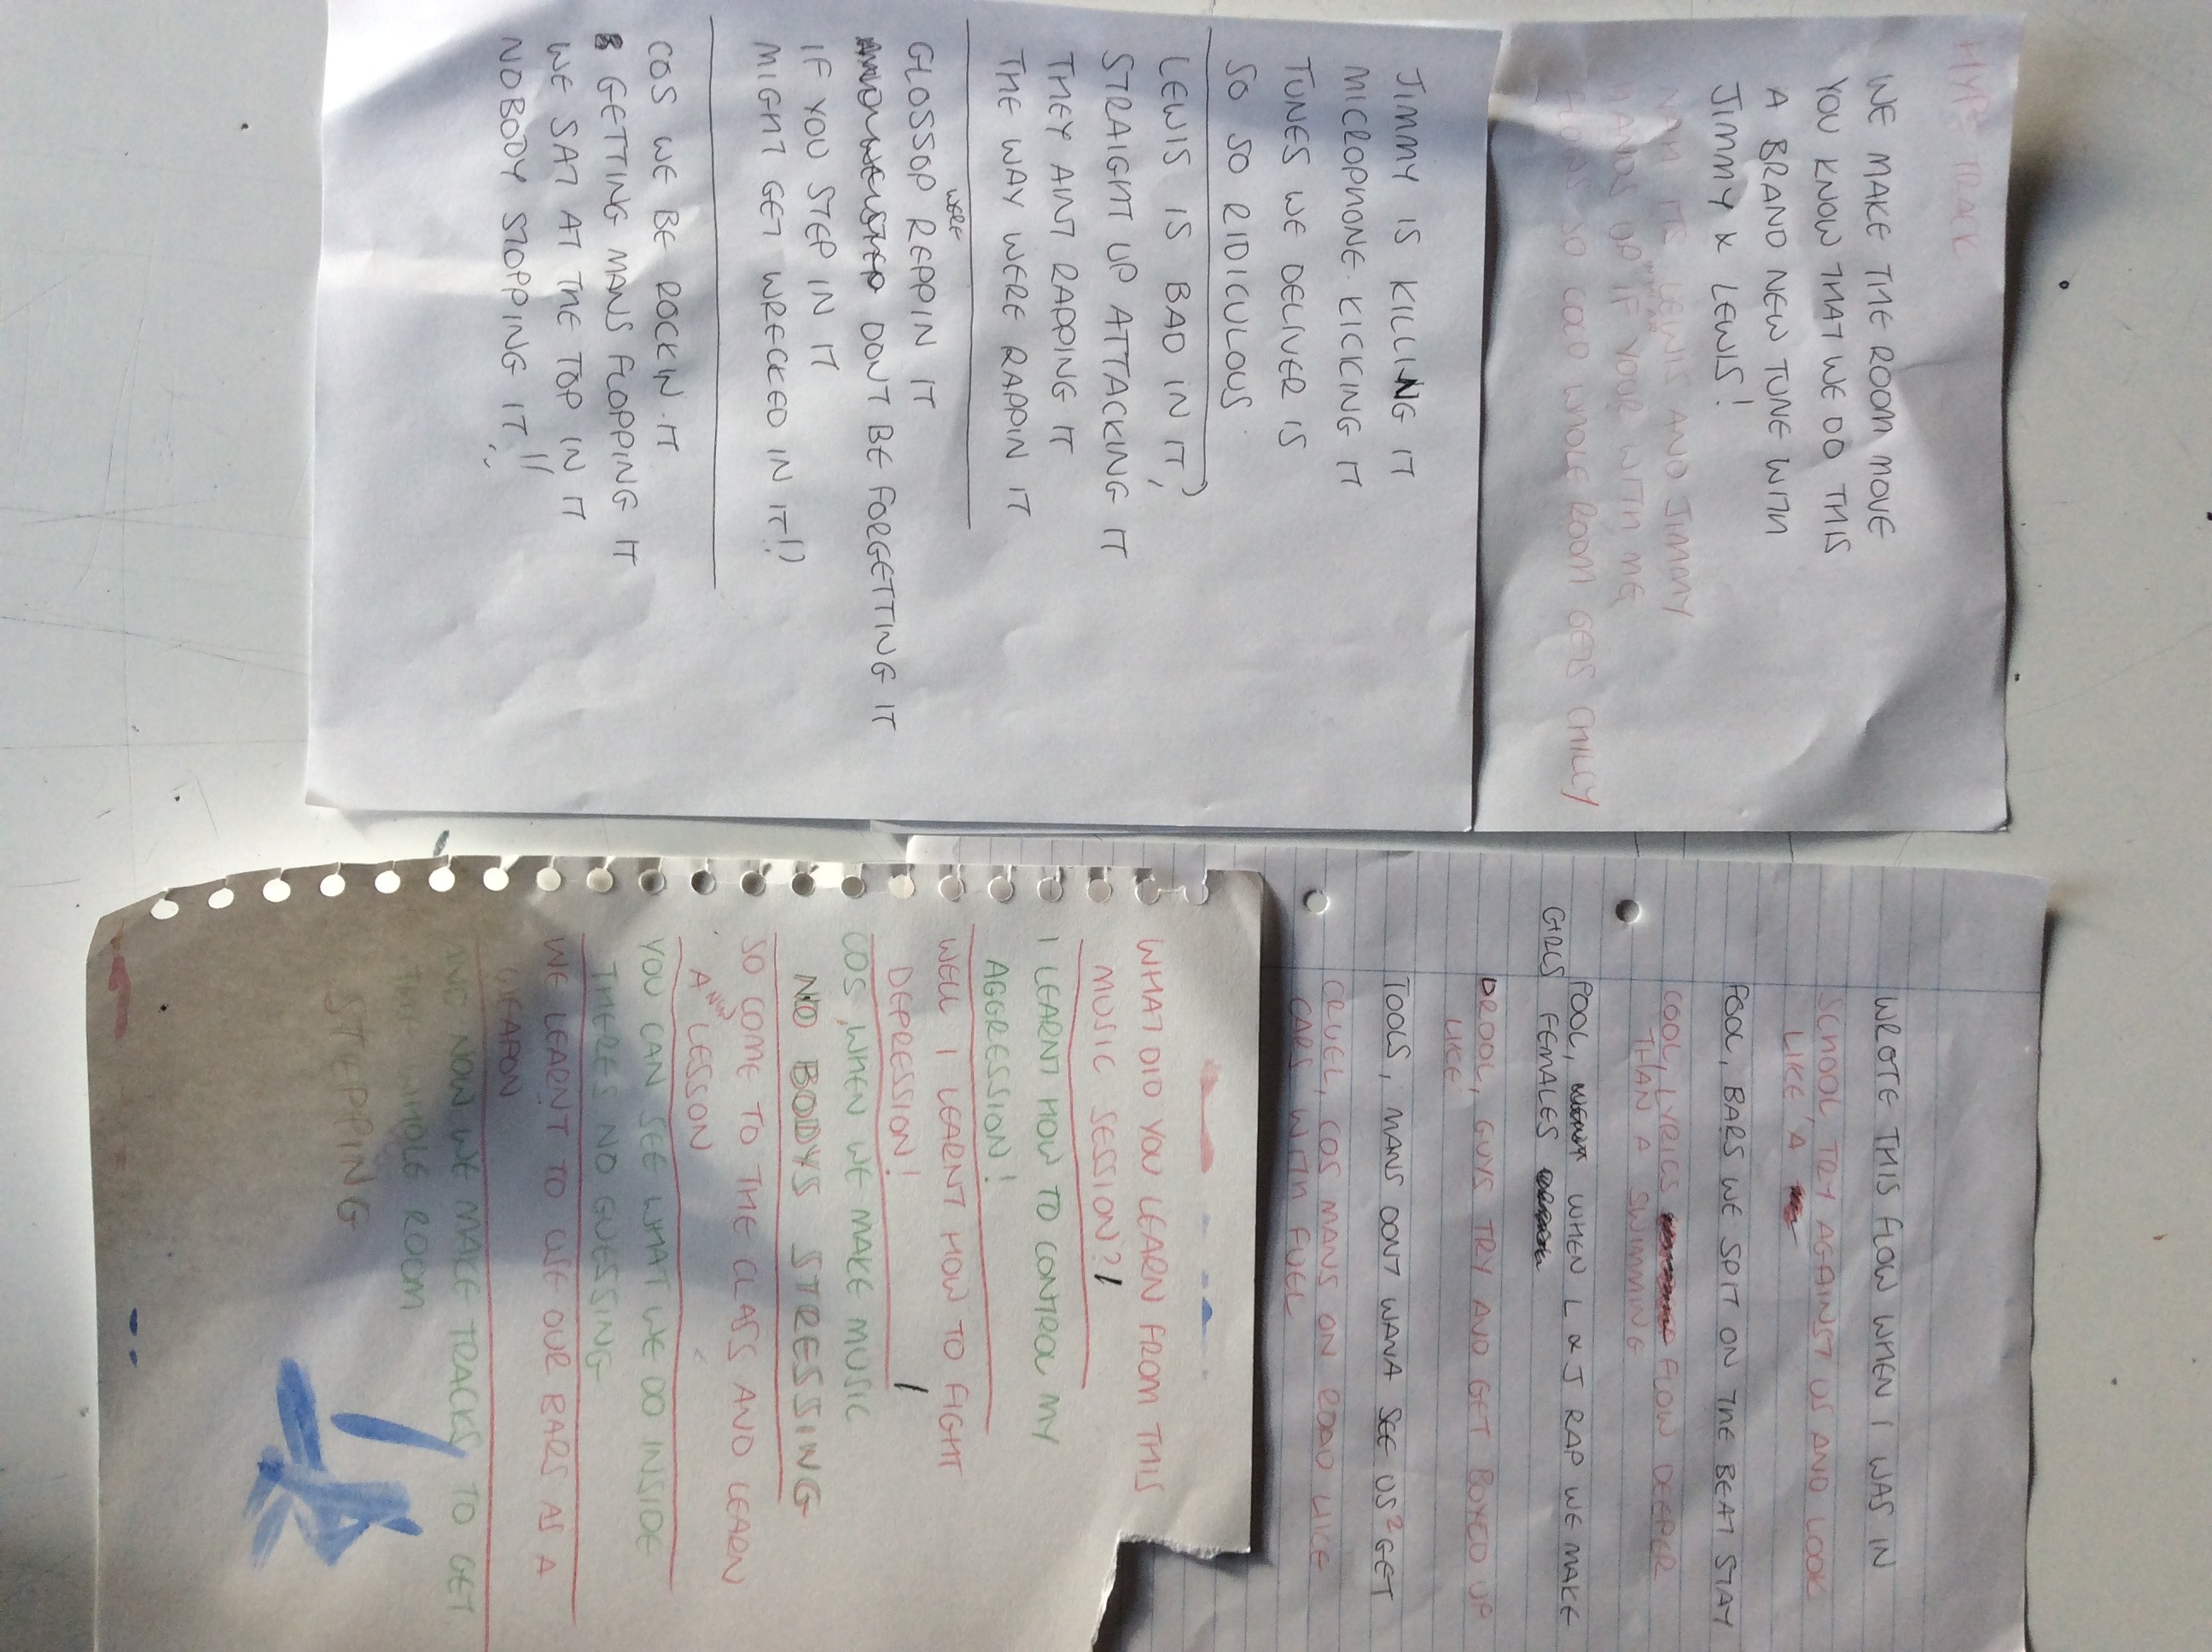 HYPE TRACK
WE MAKE THE ROOM MOVE
YOU KNOW THAT WE DO THIS
A BRAND NEW TUNE WITH
JIMMY & LEWIS!
NAH ITS LEWIS AND JIMMY
HANDS UP IF YOUR WITH ME
FLOWS SO COLD WHOLE ROOM GETS CHILLY
JIMMY IS KILLING IT
MICROPHONE KICKING IT
TUNES WE DELIVER IS
SO SO RIDICULOUS
LEWIS IS BAD IN IT,
STRAIGHT UP ATTACKING IT
THEY AINT RAPPING IT
THE WAY WERE RAPPIN IT
GLOSSOP WERE REPPIN IT
DONT BE FORGETTING IT
IF YOU STEP IN IT
MIGHT GET WRECKED IN IT!!
COS WE BE ROCKIN IT
GETTING MANS FLOPPING IT
WE SAT AT THE TOP IN IT
NOBODY STOPPING IT!!
WROTE THIS FLOW WHEN I WAS IN
SCHOOL, TRY AGAINST US AND LOOK
LIKE A
FOOL, BARS WE SPIT ON THE BEAT STAY
COOL, LYRICS FLOW DEEPER
THAN A SWIMMING
POOL, WHEN L & J RAP WE MAKE
GIRLS FEMALES
DROOL, GUYS TRY AND GET BOXED UP
LIKE
TOOLS, MANS DONT WANA SEE US 2 GET
CRUEL, COS MANS ON ROAD LIKE
CARS WITH FUEL
WHAT DID YOU LEARN FROM THIS
MUSIC SESSION?!
I LEARNT HOW TO CONTROL MY
AGGRESSION!
WELL I LEARNT HOW TO FIGHT
DEPRESSION!
COS WHEN WE MAKE MUSIC
NO BODYS STRESSING
SO COME TO THE CLASS AND LEARN
A NEW LESSON
YOU CAN SEE WHAT WE DO INSIDE
THERES NO GUESSING
WE LEARNT TO USE OUR BARS AS A
WEAPON
AND NOW WE MAKE TRACKS TO GET
THE WHOLE ROOM
STEPPING